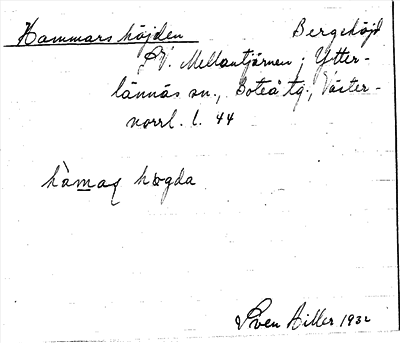 Hammarshöjden Bergshöjd
SV. Mellantjärnen; Ytter-
lännäs sn., Boteå tg., Väster-
norrl. l. 44
hàmaṣ høgda
Sven Hiller 1932